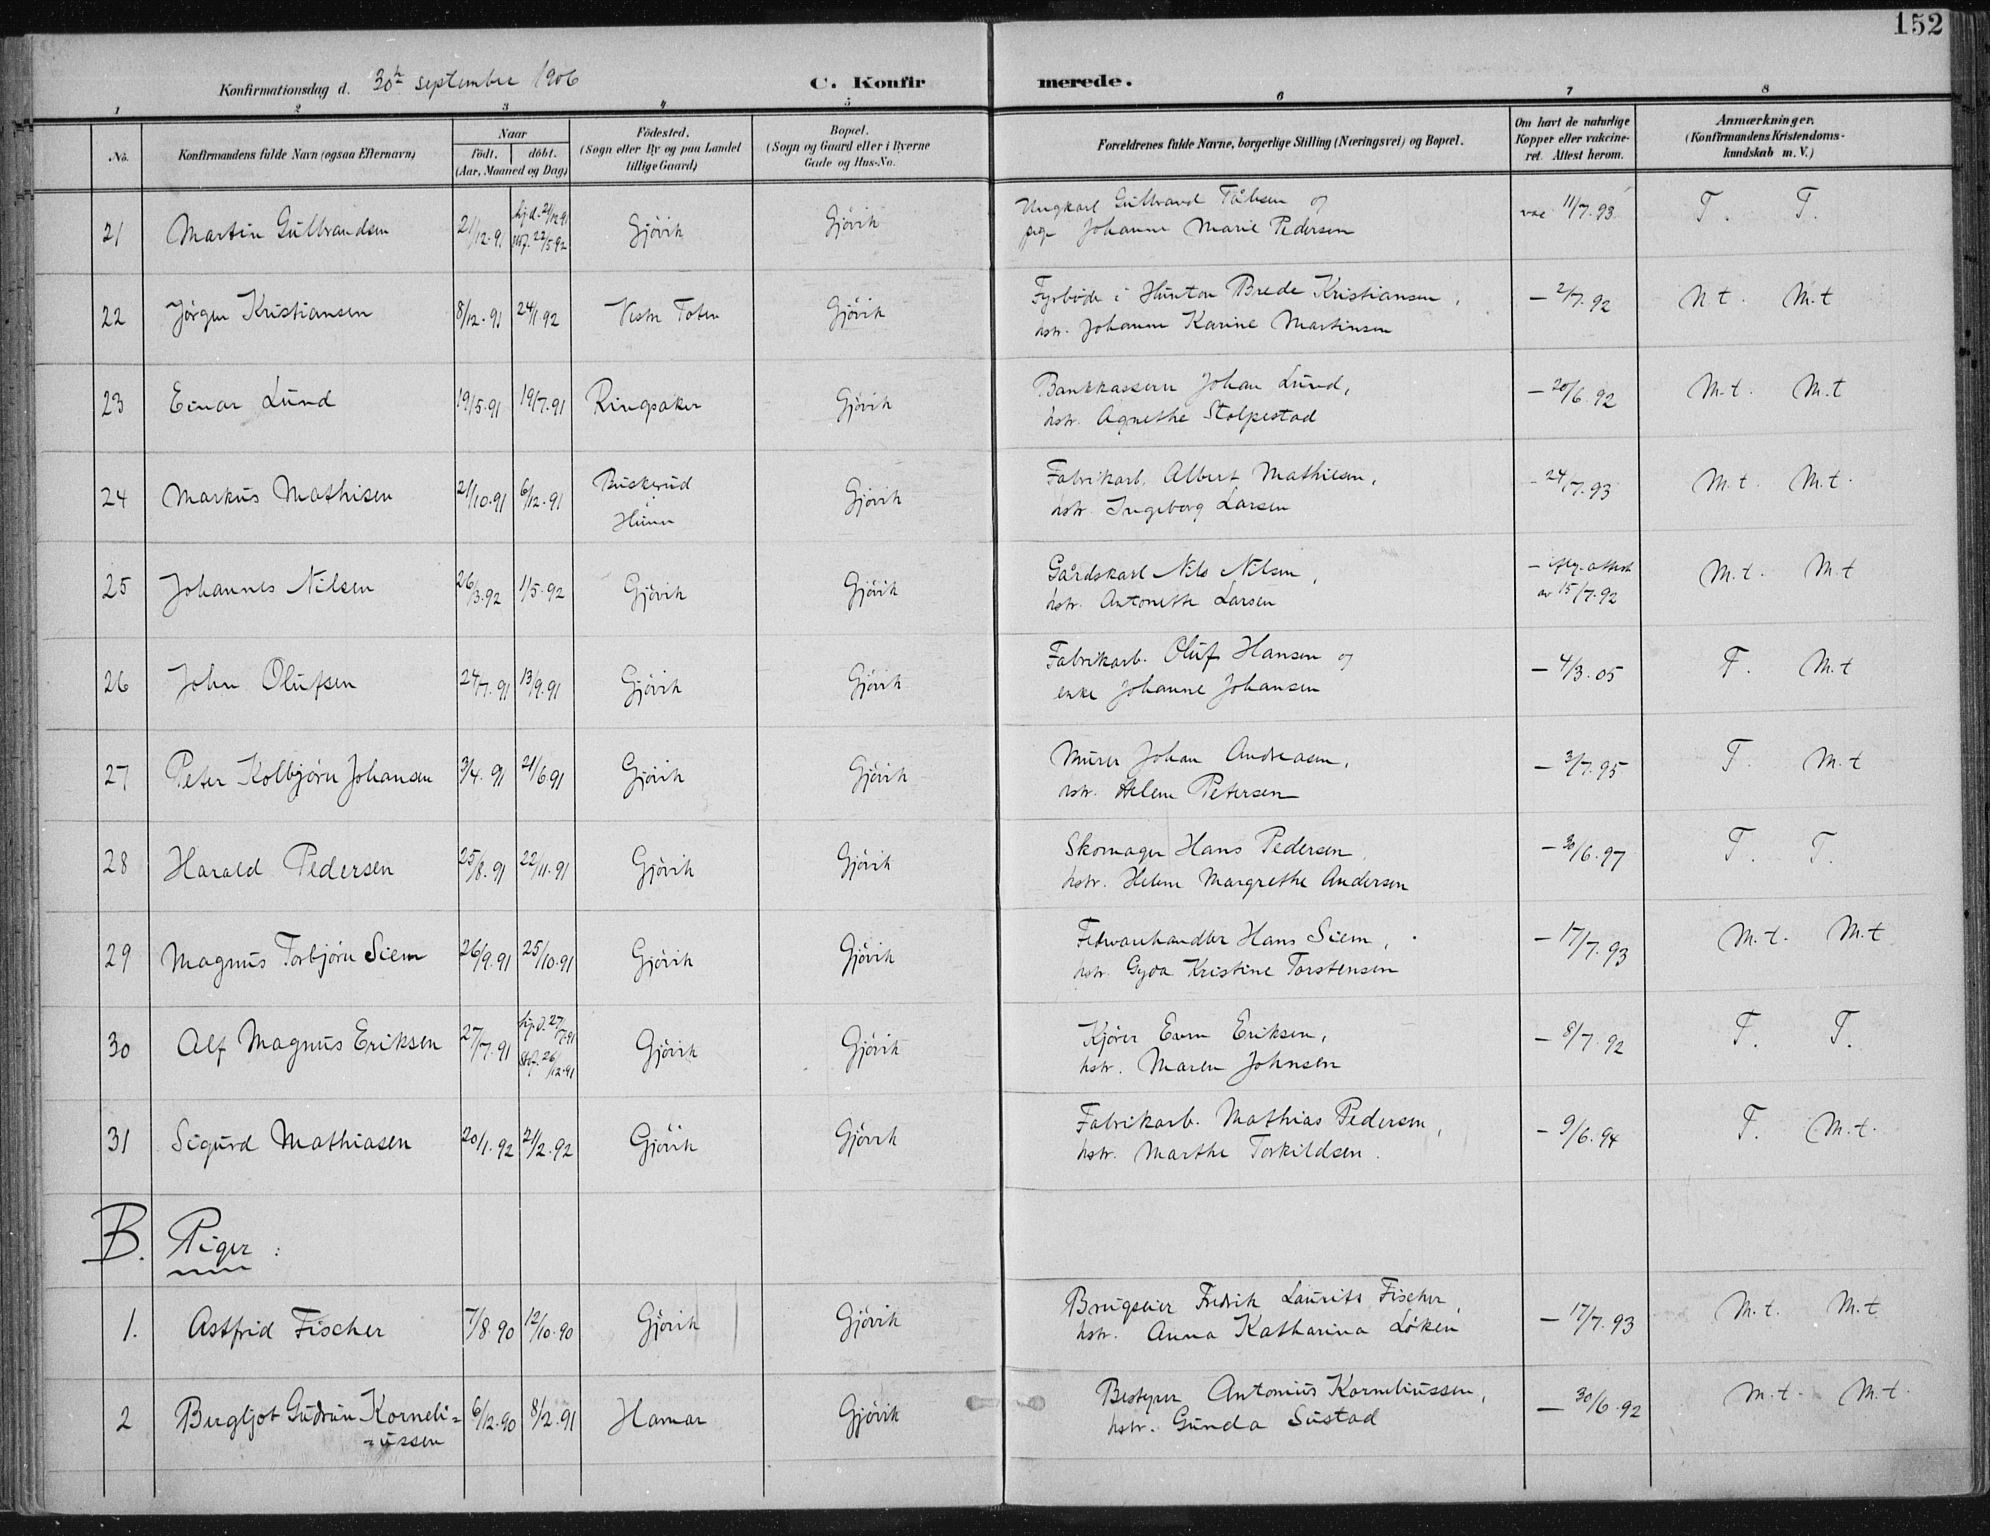 152
Konfirmationsdag d. 30te september 1906 C. Konfirmerede.
1 2 3 4 5 6 7 8
No. Konfirmandens fulde Navn (ogsaa Efternavn) Naar födt. döbt. (Aar, Maaned og Dag) Födested. (Sogn eller By og paa Landet tillige Gaard) Bopæl. (Sogn og Gaard eller i Byerne Gade og Hus-No. Forældrenes fulde Navne, borgerlige Stilling (Næringsvei) og Bopæl. Om havt de naturlige Kopper eller vakcineret. Attest herom. Anmærkninger. (Konfirmandens Kristendomskundskab m. V.)
21 Martin Gulbrandsen 21/12.91 hj.d. 21/12 91 stdf. 22/5 92 Gjövik Gjövik Ungkarl Gulbrand Tålesen og
pige Johanne Marie Pedersen vac 11/7.93 T. T.
22 Jörgen Kristiansen 8/12.91 24/1 92 Vestre Toten Gjövik Fyrböde i Hunton Brede Kristiansen,
hstr. Johanne Karine Martinsen — 2/7.92 Nt. M.t
23 Einar Lund 19/5.91 19/7.91 Ringsaker Gjövik Bankkasserer Johan Lund,
hstr. Agnethe Stolpestad — 20/6.92 M.t. M.t
24 Markus Mathisen 21/10.91 6/12.91 Buskerud
Hunn Gjövik Fabrikarb. Albert Mathisen,
hstr. Ingeborg Larsen - 24/7.93 M.t. M.t.
25 Johannes Nilsen 26/3.92 1/5.92 Gjövik Gjövik Gårdskarl Nils Nilsen,
hstr. Antonette Larsen — iflg. attest
av 15/7.92 M.t. M.t
26 John Olufsen 24/7.91 13/9.91 Gjövik Gjövik Fabrikarb. Oluf Hansen og
enke Johanne Johansen — 4/3.05 T. M.t
27 Peter Kolbjörn Johansen 3/4.91 21/6 91 Gjövik Gjövik Murer Johan Andreasen,
hstr. Helene Petersen — 3/7.95 T. M.t
28 Harald Pedersen 25/8.91 22/11.91 Gjövik Gjövik Skomager Hans Pedersen,
hstr. Helene Margrethe Andersen — 30/6.97 T. T.
29 Magnus Torbjörn Siem 26/9.91 25/10.91 Gjövik Gjövik Fedevarehandler Hans Siem,
hstr. Gyda Kristine Torstensen — 17/7.93 M.t. M.t
30 Alf Magnus Eriksen 27/7.91 hj.d. 27/7.91 stdf. 26/12.91 Gjövik Gjövik Kjörer Even Eriksen,
hstr. Maren Johnsen — 8/7.92 T. T.
31 Sigurd Mathiasen 20/1.92 21/2.92 Gjövik Gjövik Fabrikarb. Mathias Pedersen,
hstr. Marthe Torkildsen. — 9/6.94 T. M.t.
B. Piger:
1. Astfrid Fischer 7/8.90 12/10.90 Gjövik Gjövik Brugseier Fredrik Laurits Fischer,
hstr. Anna Katharina Löken — 17/7.93 M.t. M.t
2 Bergljot Gudrun Korneli=
=ussen 6/12.90 8/2.91 Hamar Gjövik Bestyrer Antonius Korneliussen,
hstr. Gunda Sustad — 30/6.92 M.t. M.t.